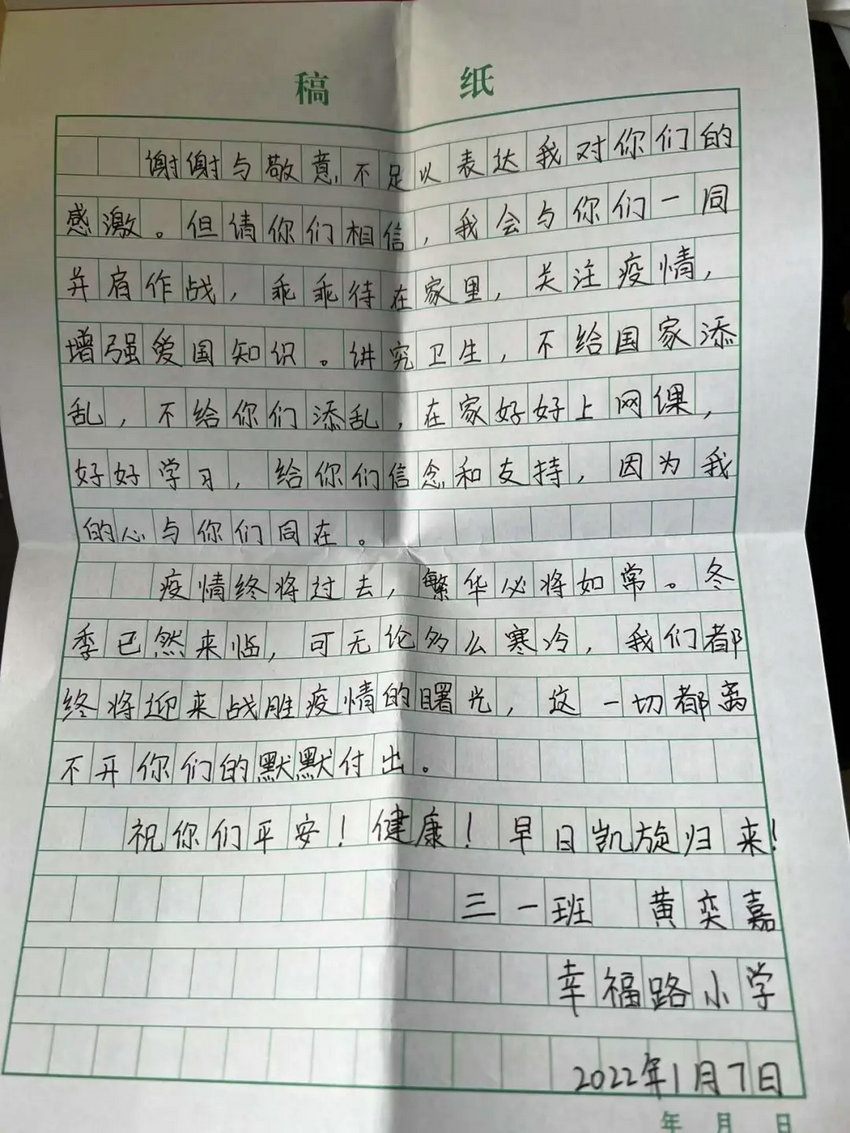 稿 纸
谢谢与敬意不足以表达我对你们的
感激。但请你们相信，我会与你们一同
并肩作战，乖乖待在家里，关注疫情，
增强爱国知识。讲究卫生，不给国家添
乱，不给你们添乱，在家好好上网课，
好好学习，给你们信念和支持，因为我
的心与你们同在。
疫情终将过去，繁华必将如常。冬
季已然来临，可无论多么寒冷，我们都
终将迎来战胜疫情的曙光，这一切都离
不开你们的默默付出。
祝你们平安！健康！早日凯旋归来！
三一班 黄奕嘉
幸福路小学
2022年1月7日
年 月 日